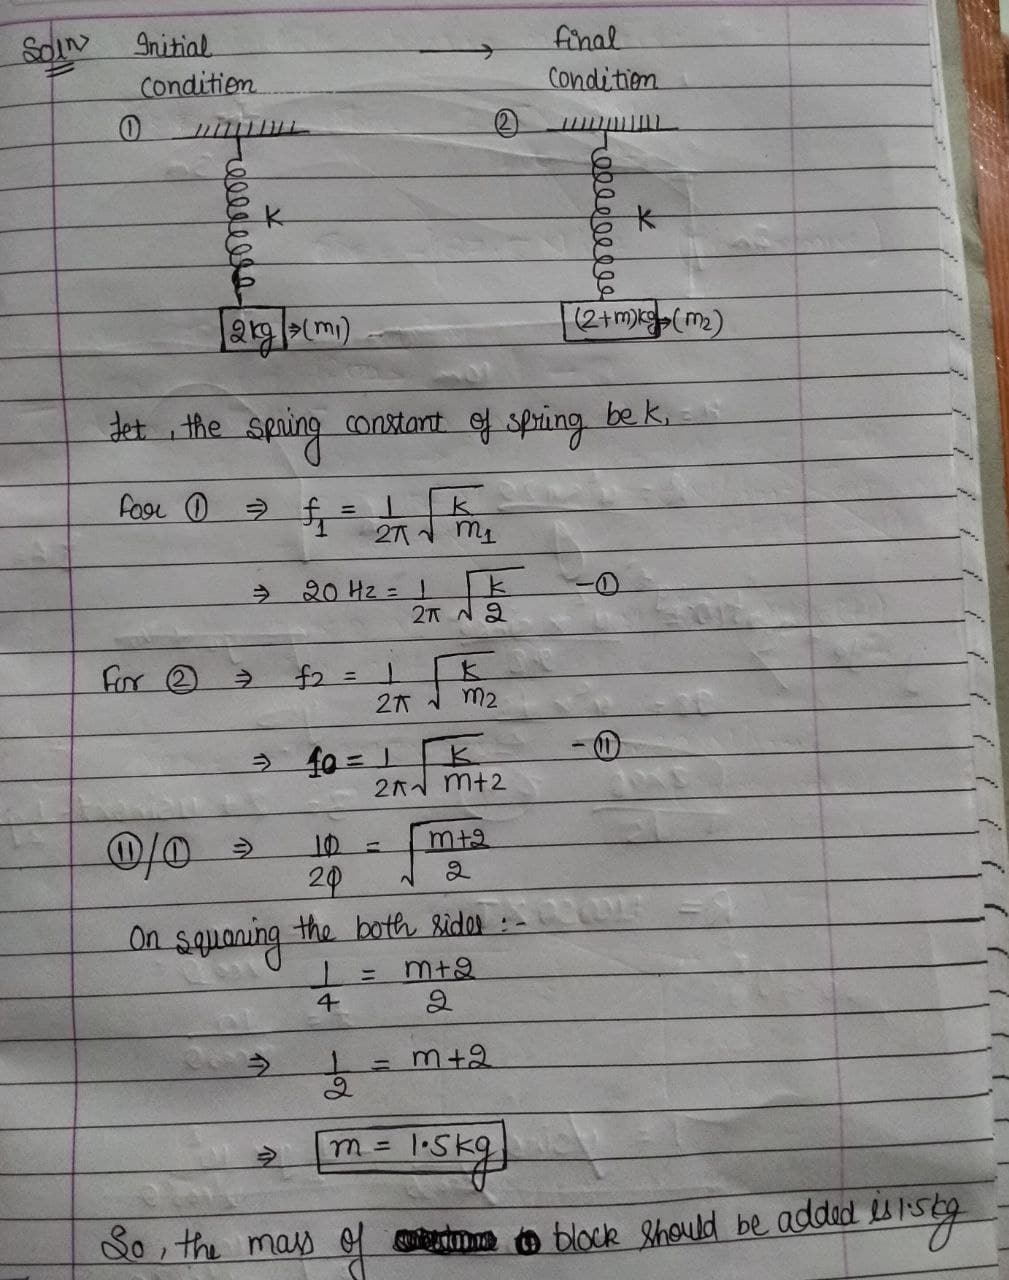 Soln Initial → final
condition condition
① ②
K K
2kg ⇒(m1) (2+m)kg⇒(m2)
Let, the spring constant of spring be K,
For ① ⇒ f1 = 1/2π √(K/m1)
⇒ 20 Hz = 1/2π √(K/2) -①
For ② ⇒ f2 = 1/2π √(K/m2)
⇒ 10 = 1/2π √(K/m+2) -⑪
⑪/① ⇒ 10/20 = √(m+2/2)
On squaring the both sides :-
1/4 = m+2/2
⇒ 1/2 = m+2
⇒ m = 1.5kg
So, the mass of block should be added is 1.5kg